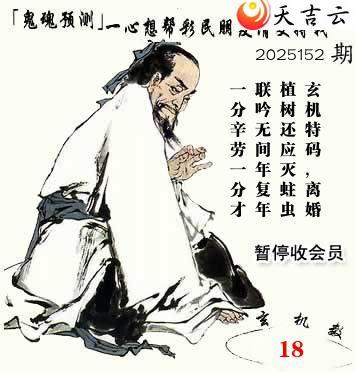 天吉云
「鬼魂預測」一心想帮彩民朋
2025152 期
玄机特码，离婚
植树还应灭蛀虫
联吟无间年复年
一分辛劳一分才
暂停收会员
玄机数
18